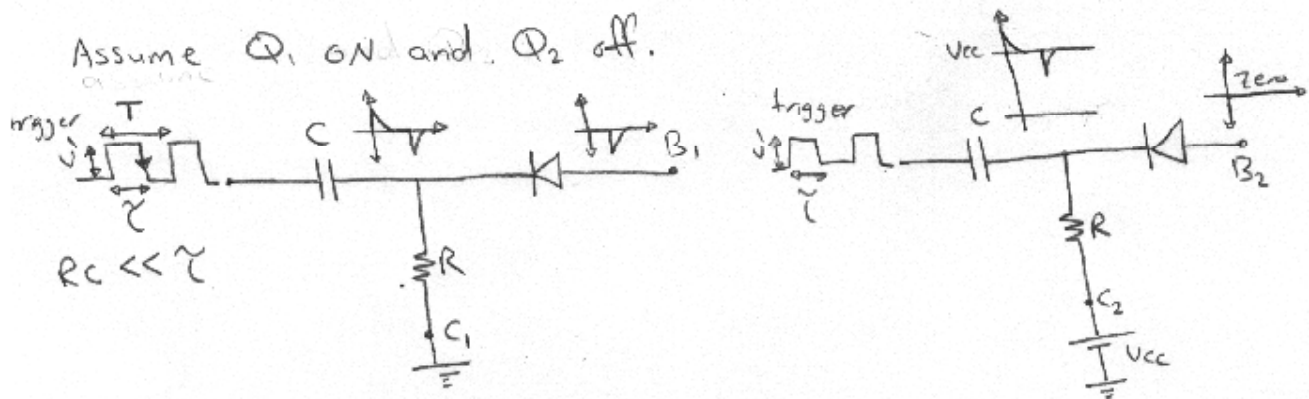 Assume Q₁ ON and. Q₂ off.
trigger
T
V
τ
RC << τ
C
R
C₁
B₁
trigger
V
τ
C
Vcc
Zero
B₂
R
C₂
Vcc